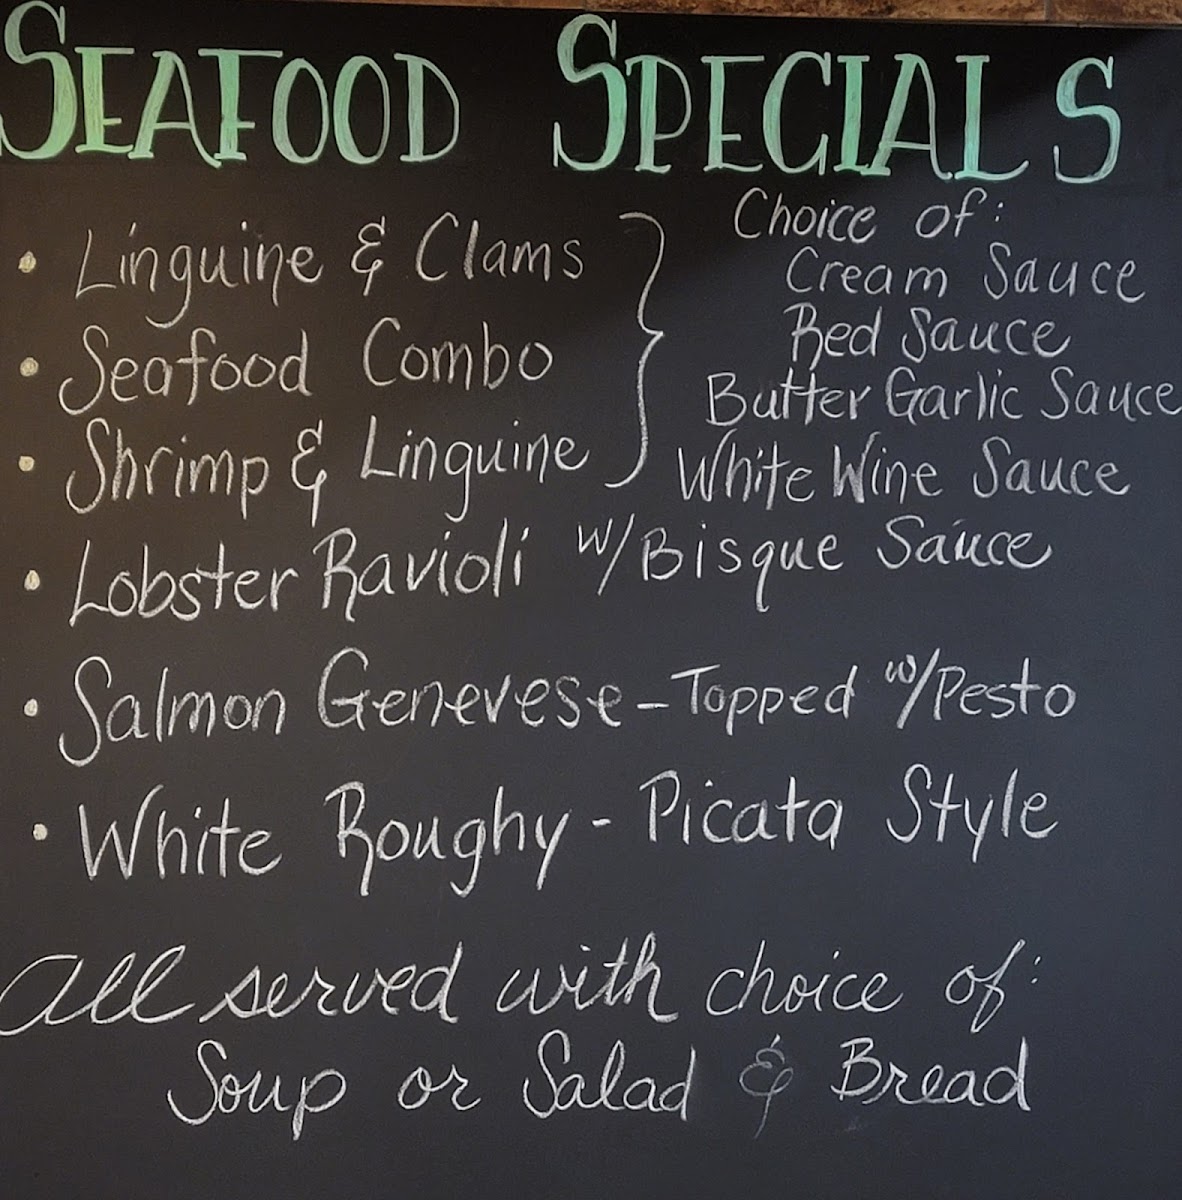 SEAFOOD SPECIALS
• Linguine & Clams
• Seafood Combo
• Shrimp & Linguine
Choice of:
Cream Sauce
Red Sauce
Butter Garlic Sauce
White Wine Sauce
• Lobster Ravioli w/ Bisque Sauce
• Salmon Genevese - Topped w/ Pesto
• White Roughy - Picata Style
All served with choice of:
Soup or Salad & Bread